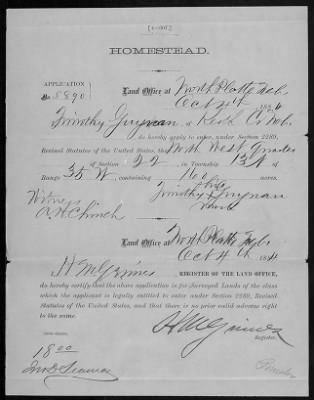 [4—007.]
HOMESTEAD.
APPLICATION
No. 8890
Land Office at North Platte Neb
Oct 4th 1884
I, Timothy Guynan, of Keith Co Neb
do hereby apply to enter, under Section 2289,
Revised Statutes of the United States, the North West Quarter
of Section 22 in Township 13 N of
Range 35 W, containing 160 acres.
Witness
Timothy his Guynan
mark
Land Office at North Platte Neb
Oct 4th 1884
I, REGISTER OF THE LAND OFFICE,
do hereby certify that the above application is for Surveyed Lands of the class
which the applicant is legally entitled to enter under Section 2289, Revised
Statutes of the United States, and that there is no prior valid adverse right
to the same.
Register.
18 00